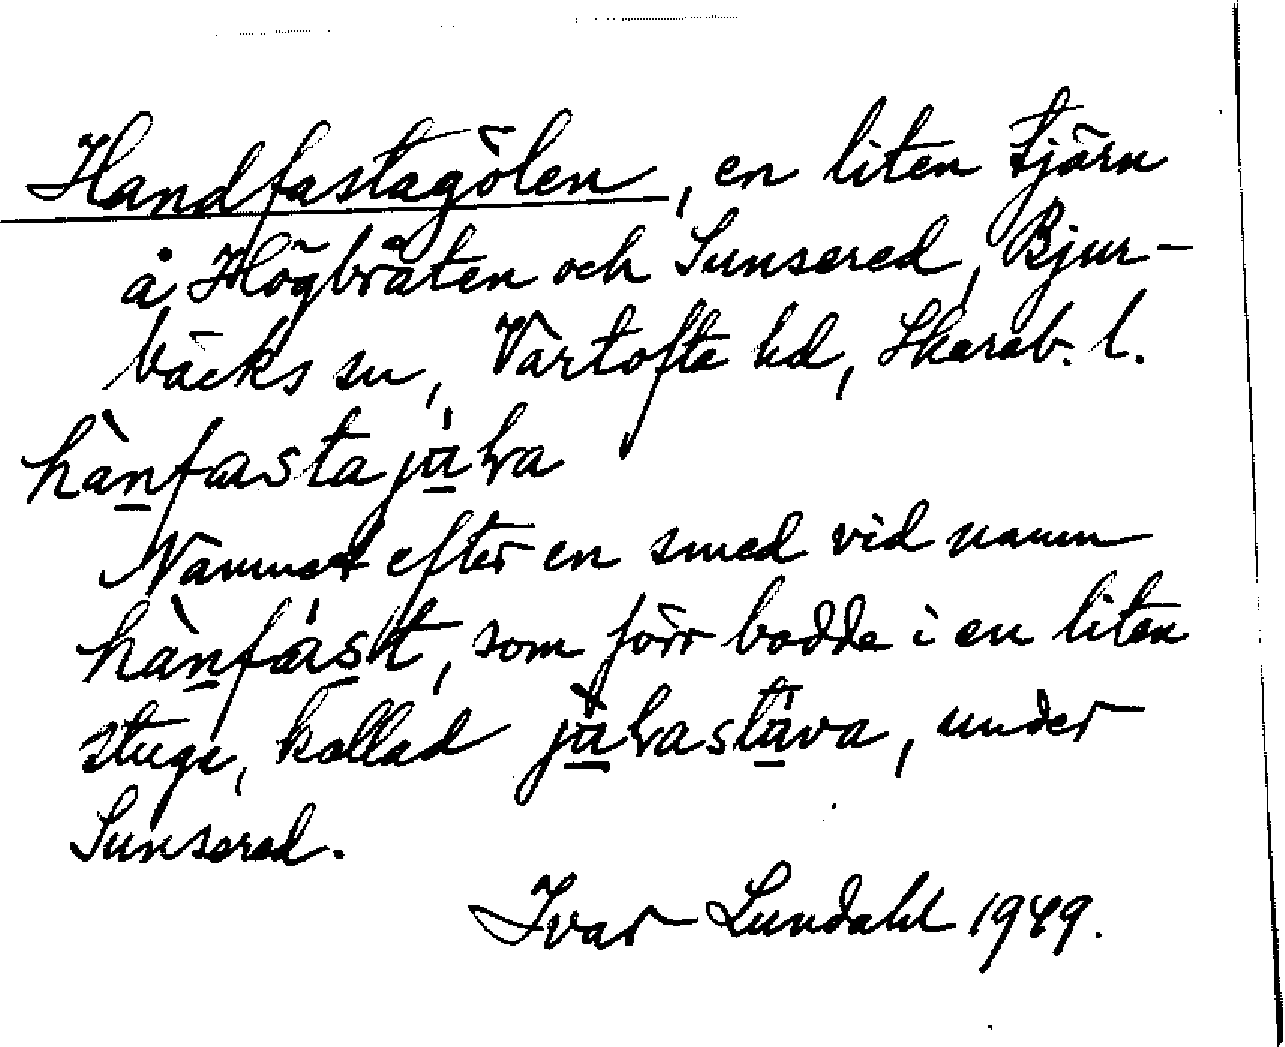 Handfastagölen, en liten tjärn
å Högbråten och Sunsered, Bjur-
bäcks sn, Vartofte hd, Skarab. l.
hànfasta
Namnet efter en smed vid namn
hànfást, som förr bodde i en liten
stuga, kallad under
Sunsered.
Ivar Lundahl 1949.